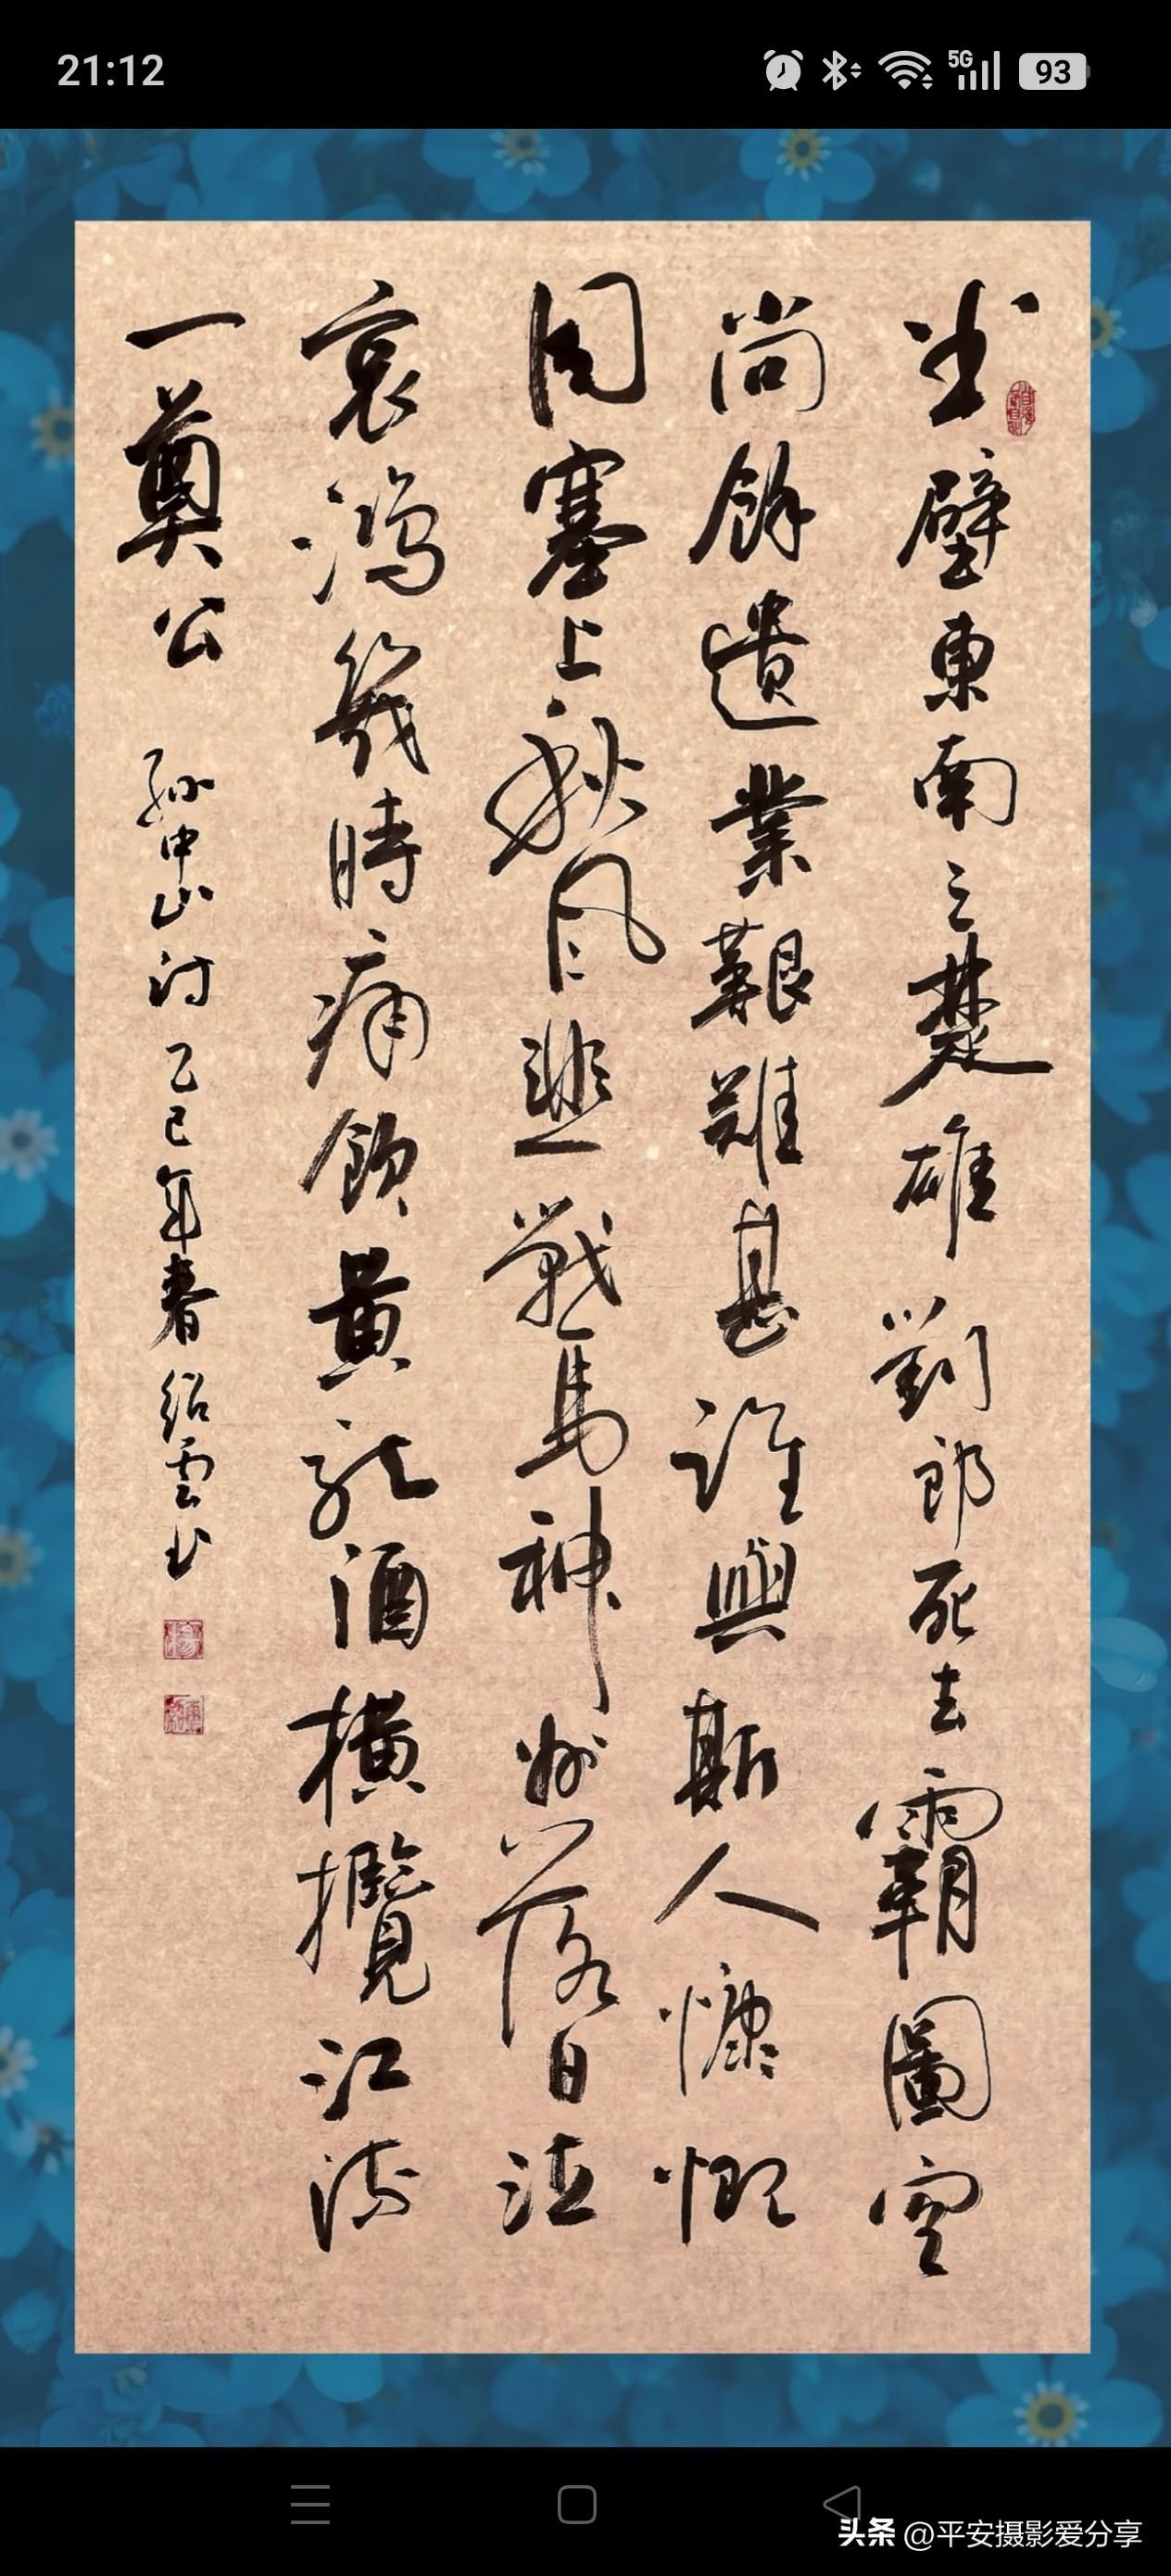 21:12
5G 93
半壁東南三楚雄劉郎死去霸圖空
尚餘遺業艱難甚誰與斯人慷慨
同塞上秋風悲戰馬神州落日泣
哀鴻幾時痛飲黃龍酒橫攬江流
一奠公 孫中山詩 乙巳年春紹雲書
头条 @平安摄影爱分享